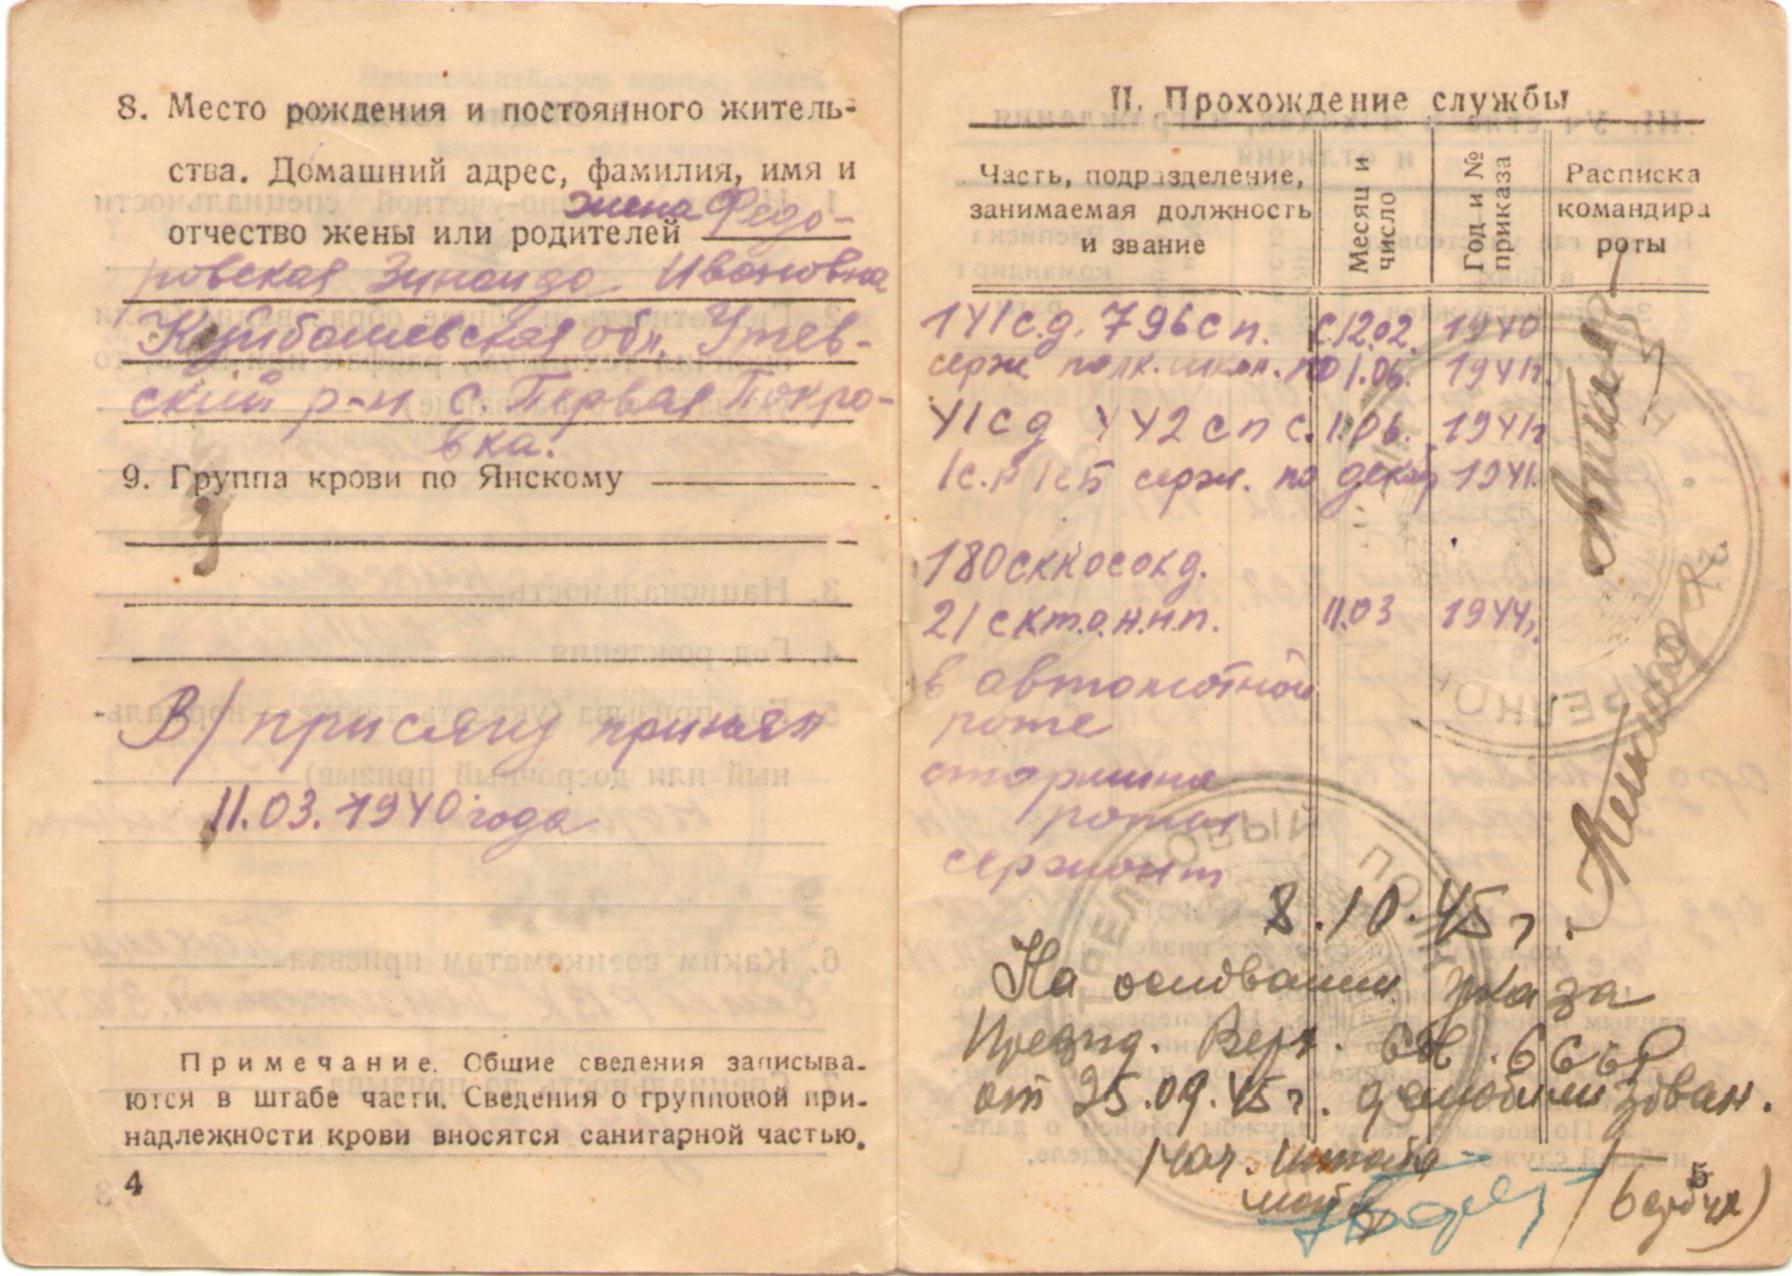 8. Место рождения и постоянного житель-
ства. Домашний адрес, фамилия, имя и
отчество жены или родителей жена Федо-
ровская Зинаида Ивановна
Куйбышевская обл. Утев-
ский р-н с. Первая Покро-
вка.
9. Группа крови по Янскому
В/присягу принял
11.03.1940 года
Примечание. Общие сведения записыва-
ются в штабе части. Сведения о групповой при-
надлежности крови вносятся санитарной частью.
4
II. Прохождение службы
Часть, подразделение,
занимаемая должность
и звание
Месяц и
число
Год и №
приказа
Расписка
командира
роты
141с.д. 796сп. с12.02. 1940
серж. полк. школ. по 1.06. 1941г.
41сд 442сп с.1.06. 1941г
серж. по декаб 1941.
180
21 11.03 1944г.
в автоматной
роте
старшина
роты
сержант
8.10.45г.
На основании указа
Презид. Верх. Сов. СССР
от 25.09.45г. демобилизован.
Нач. штаба
5